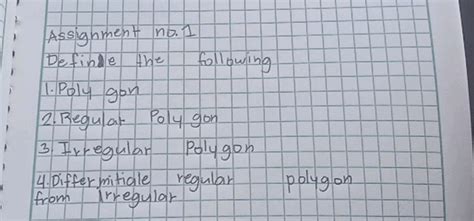 Assignment no.1
Definde the following
1. Poly gon
2. Regular Poly gon
3. Irregular Polygon
4. Differmitiale regular polygon
from Irregular